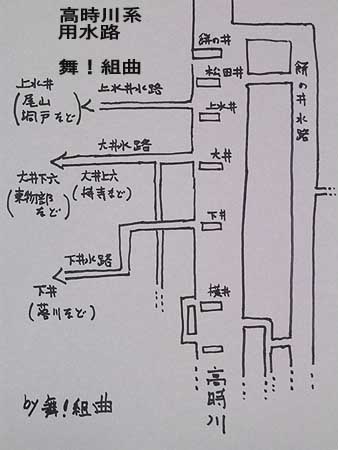 高時川系
用水路
舞！組曲
餅の井
松田井
上水井
大井
下井
横井
高時川
餅の井水路
上水井水路
上水井
(尾山
洞戸など)
大井水路
大井下六
(東物部
など)
大井上六
(持寺など)
下井水路
下井
(落川など)
by舞！組曲